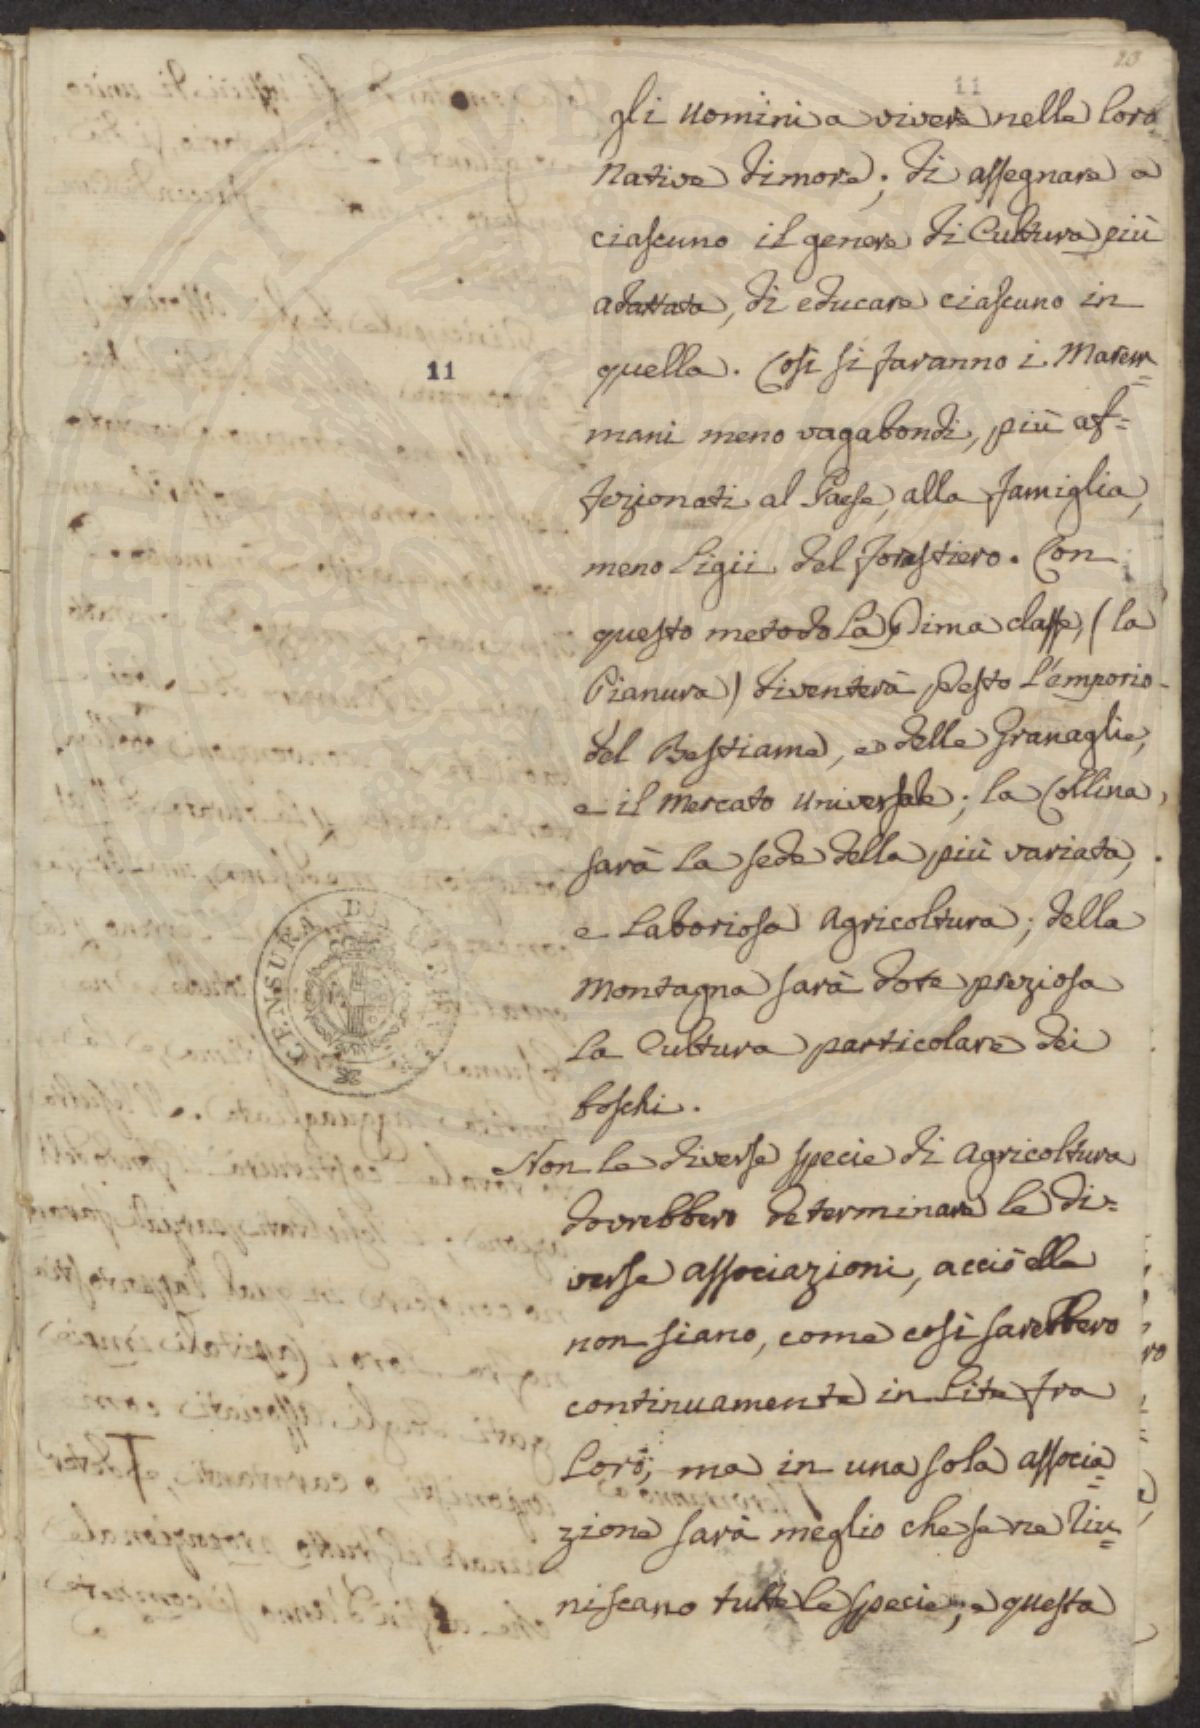 23
11
gli uomini a vivere nelle loro
native dimore; di assegnare a
ciascuno il genere di Cultura più
adattata, di educare ciascuno in
quella. Così si faranno i Marem=
mani meno vagabondi, più af=
fezionati al Paese, alla famiglia,
meno ligii del forastiero. Con
questo metodo la Pima classe, (la
Pianura) diventerà pesto l'emporio
del Bestiame, e delle Granaglie,
e il mercato universale; la Collina
sarà la sede della più variata,
e laboriosa agricoltura; della
montagna sarà dote preziosa
la Cultura particolare dei
boschi.
Non le diverse specie di agricoltura
dovrebbero determinare le di=
verse associazioni, acciò elle
non siano, come così sarebbero
continuamente in lite fra
loro; ma in una sola associa=
zione sarà meglio che se ne riu=
niscano tutte le specie; e questa
11
CENSURA